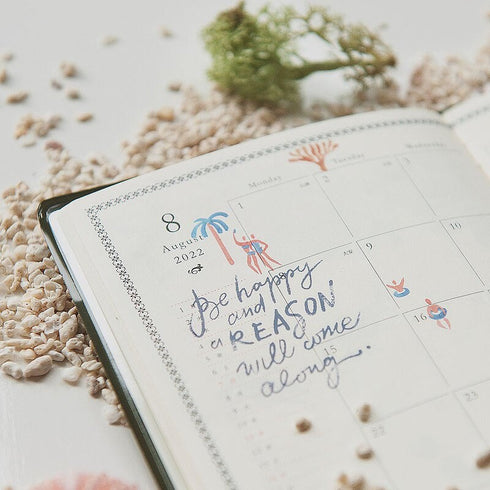 Monday
Tuesday
Wednesday
8
August
2022
1
2
3
9
10
15
16
22
23
Be happy
and
a REASON
will come
along.